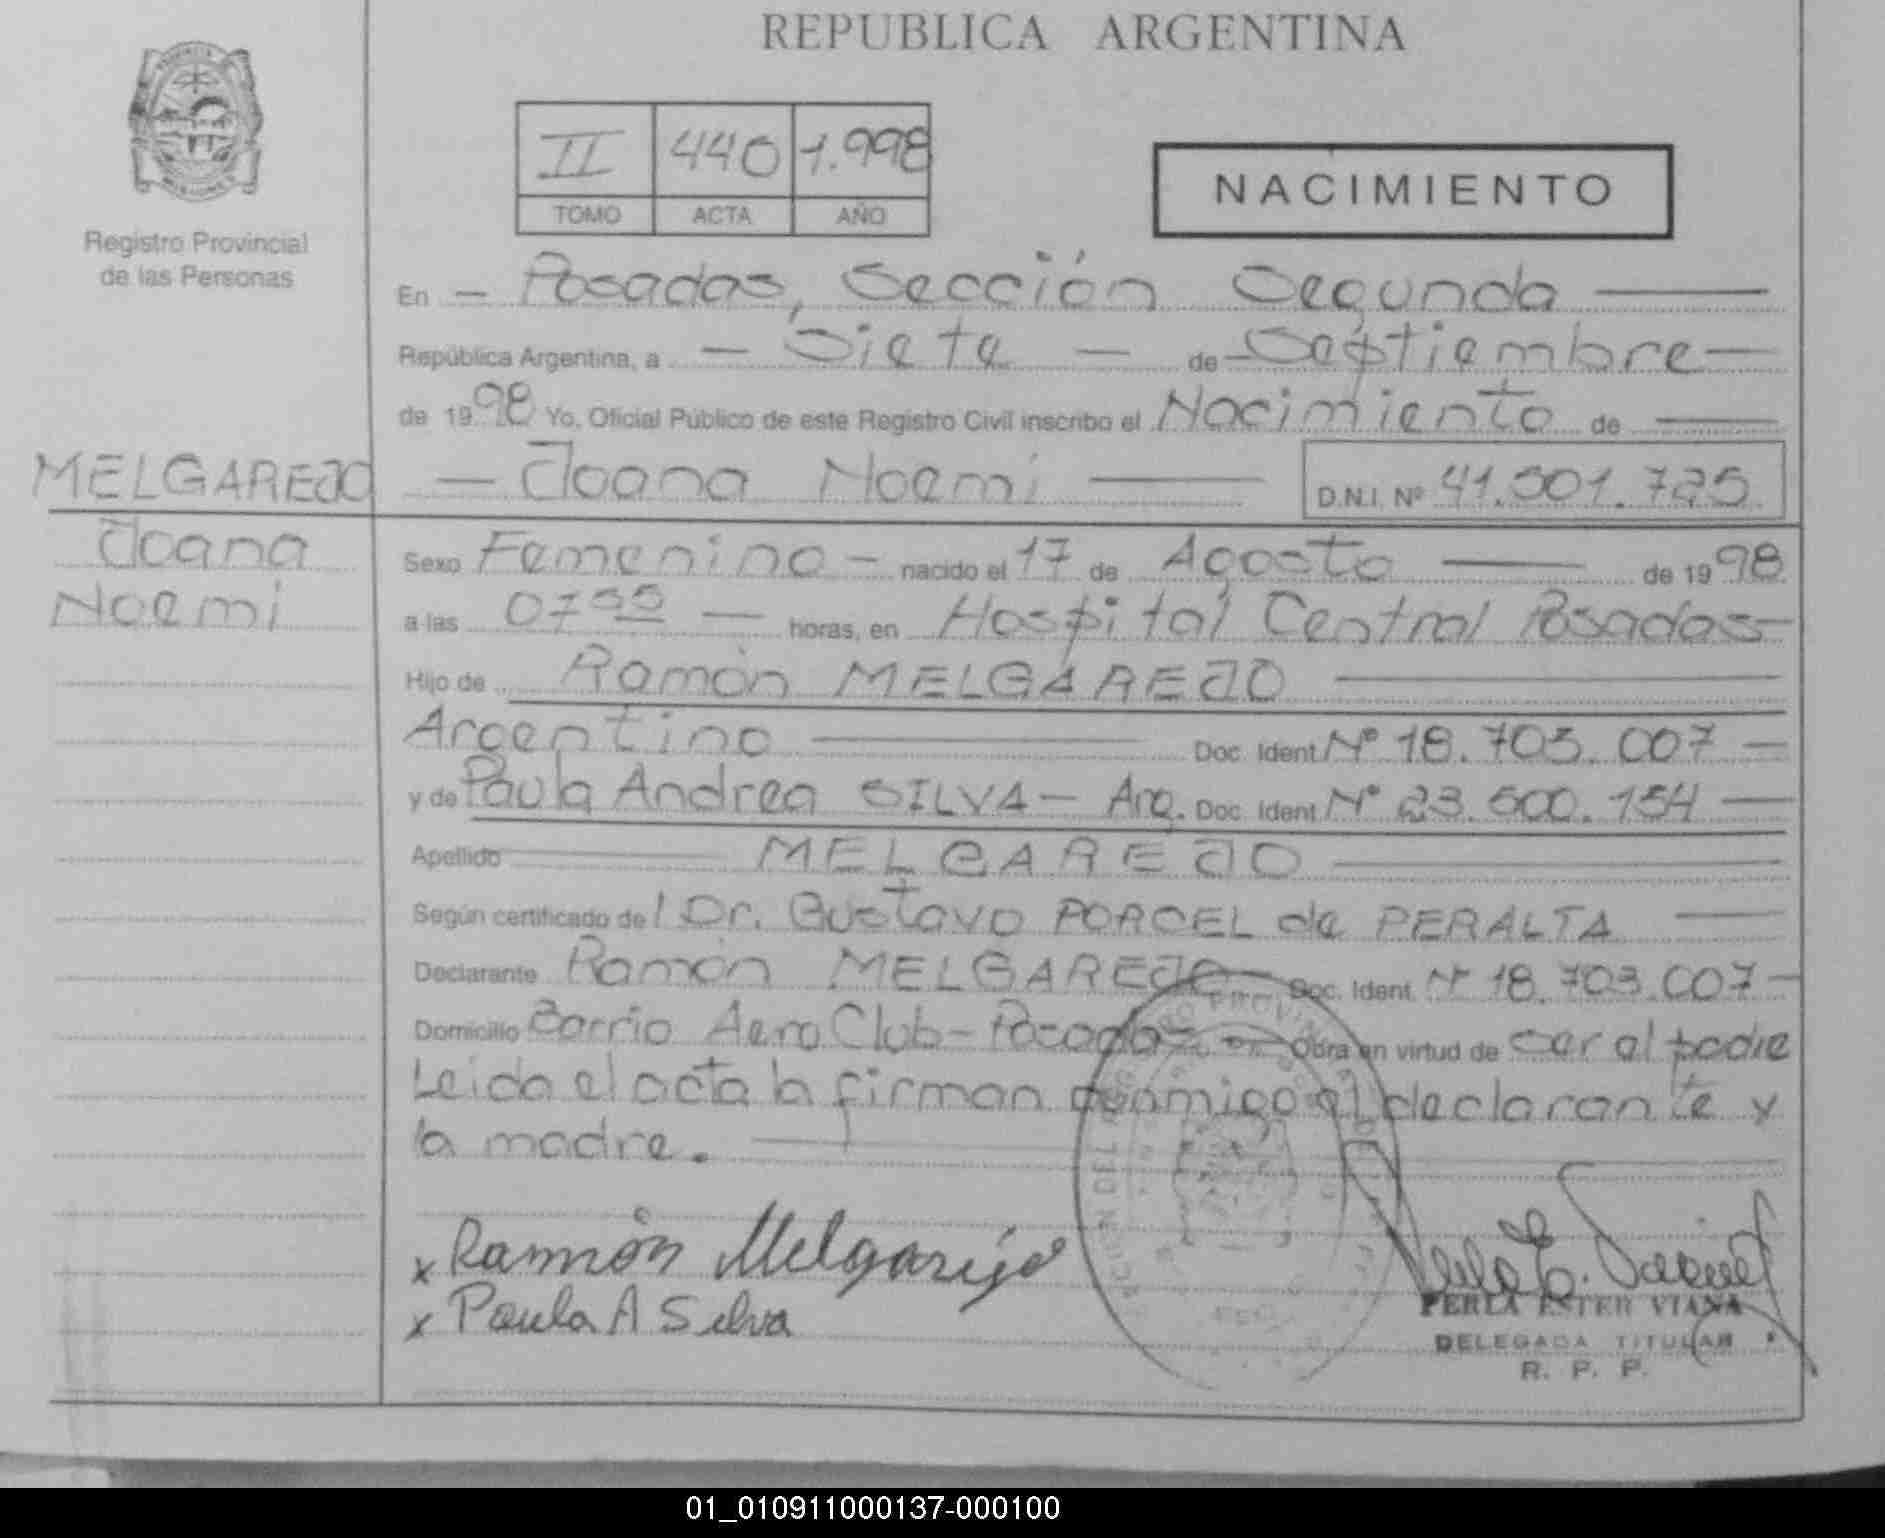 REPUBLICA ARGENTINA
Registro Provincial
de las Personas
II 440 1.998
TOMO ACTA AÑO
NACIMIENTO
En Posadas, Sección Segunda
República Argentina, a Siete de Septiembre
de 1998 Yo, Oficial Público de este Registro Civil inscribo el Nacimiento de
MELGAREJO
Joana
Noemi
Joana Noemi D.N.I. Nº 41.501.725
Sexo Femenino nacido el 17 de Agosto de 1998
a las 07 55 horas, en Hospital Central Posadas
Hijo de Ramón MELGAREJO
Argentino Doc. Ident Nº 18.703.007
y de Paula Andrea SILVA - Arg. Doc. Ident Nº 23.500.154
Apellido MELGAREJO
Según certificado del Dr. Gustavo PORCEL de PERALTA
Declarante Ramón MELGAREJO Doc. Ident. Nº 18.703.007
Domicilio Barrio Aero Club - Posadas Obra en virtud de ser el padre
Leida el acta la firman conmigo el declarante y
la madre.
x Ramón Melgarejo
x Paula A Silva
PERLA ESTER VIANA
DELEGADA TITULAR
R. P. P.
01_010911000137-000100